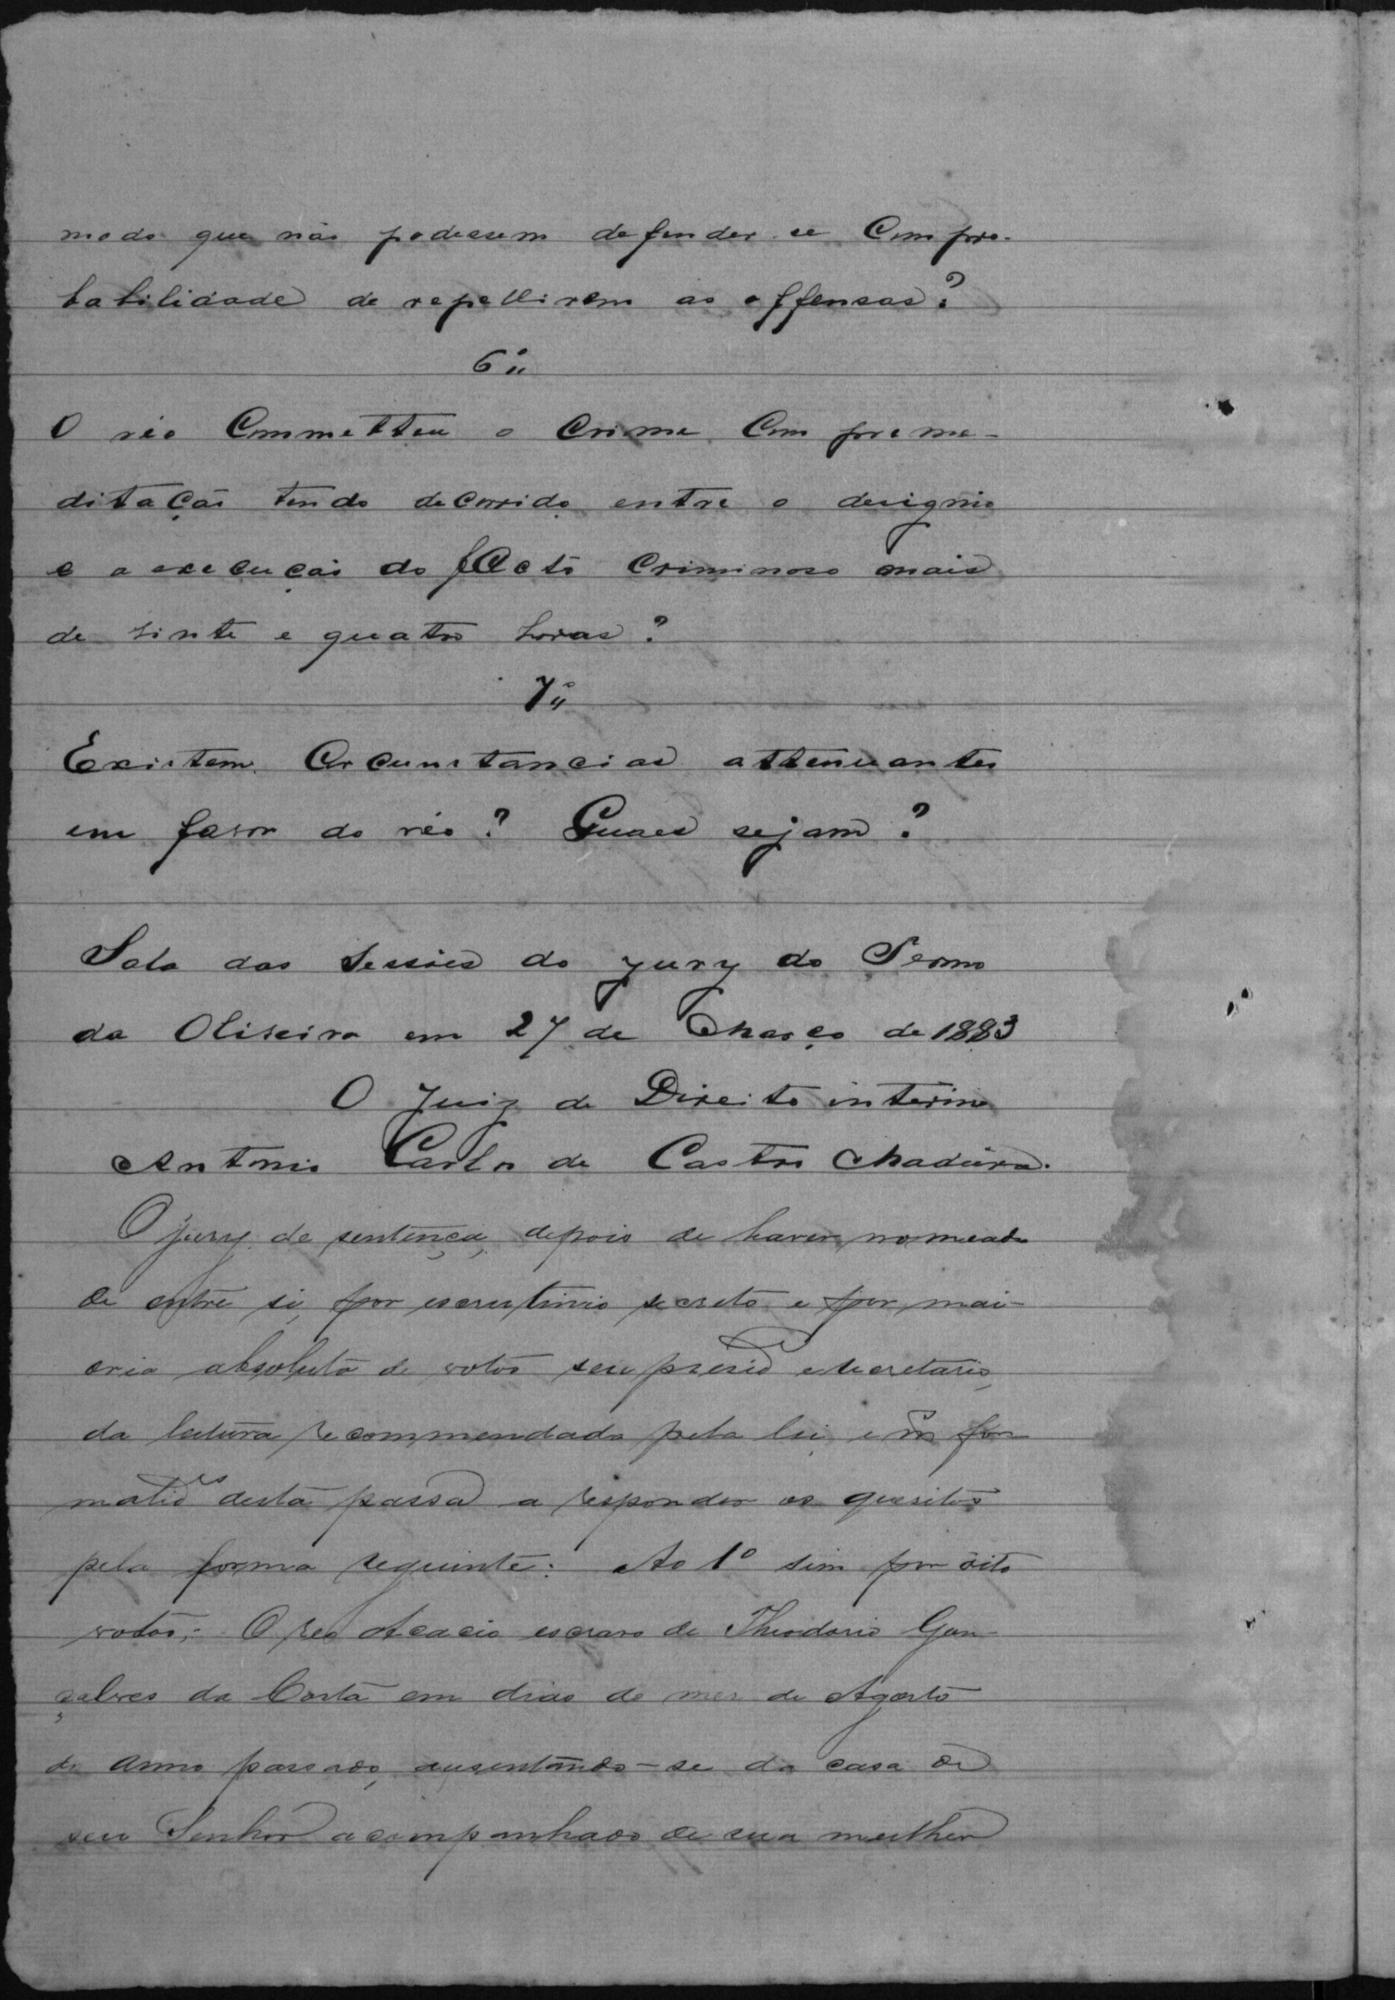 modo que não podessem defender-se Com pro-
babilidade de repellirem as offensas?
6º
O réo Commetteu o Crime Com preme-
ditação tendo decorrido entre o designio
e a execução do facto Criminoso mais
de vinte e quatro horas?
7º
Existem Circunstancias attenuantes
em favor do réo? Quaes sejam?
Sala das sessões do jury do Termo
da Oliveira em 27 de Março de 1883
O Juiz de Direito interino
Antonio Carlos de Castro Madeira.
O jury de sentença, depois de haver nomeado
de entre si, por escrutinio secreto e por mai-
oria absoluta de votos seu presid e secretario,
da leitura recommendada pela lei, e
desta passa a responder os quesitos
pela forma seguinte: Ao 1º sim por oito
votos; O reo Acacio escravo de Theodorio Gon-
çalves da Costa em dias do mes de Agosto
do anno passado, ausentando-se da casa de
seu Senhor acompanhado de sua mulher